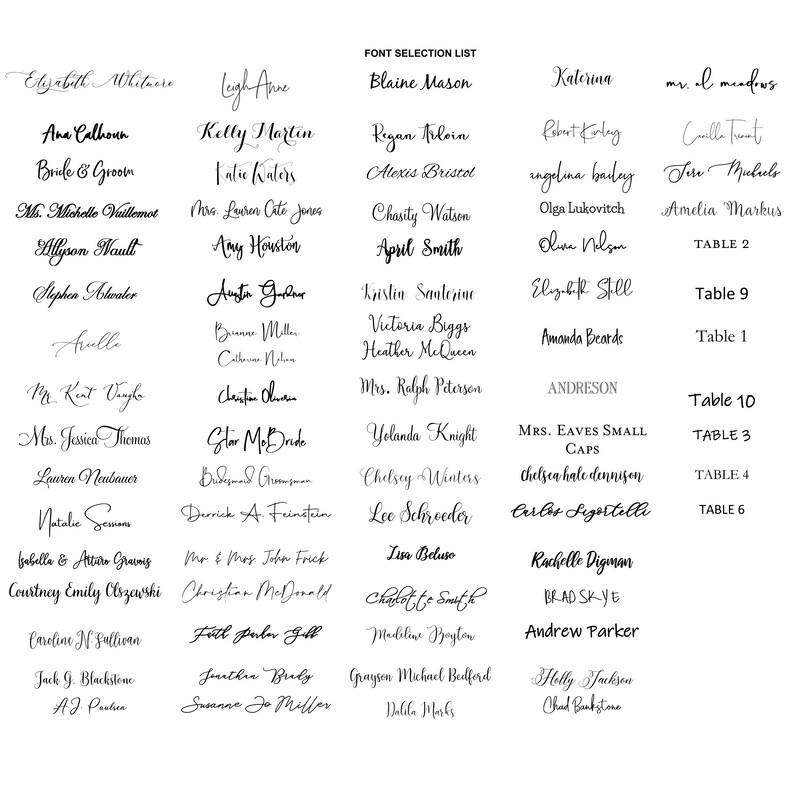 FONT SELECTION LIST
Elizabeth Whitmore
Leigh Anne
Blaine Mason
Katerina
mr. al meadows
Ana Calhoun
Kelly Martin
Regan Ardoin
Robert Kinley
Camilla Trement
Bride & Groom
Katie Waters
Alexis Bristol
angelina bailey
Sara Michaels
Ms. Michelle Vuillemot
Mrs. Lauren Cate Jones
Chasity Watson
Olga Lukovitch
Amelia Markus
Allyson Nault
Amy Houston
April Smith
Olivia Nelson
TABLE 2
Stephen Atwater
Austin Gardner
Kristin Santorino
Elizabeth Stell
Table 9
Arielle
Brianne Miller
Catherine Nelson
Victoria Biggs
Heather McQueen
Amanda Beards
Table 1
Mr. Kent Vaughn
Christine Oliveria
Mrs. Ralph Peterson
ANDRESON
Table 10
Mrs. Jessica Thomas
Star McBride
Yolanda Knight
Mrs. Eaves Small
Caps
TABLE 3
Lauren Neubauer
Bridesmaid Groomsman
Chelsey Winters
chelsea hale dennison
TABLE 4
Natalie Sessions
Derrick A. Feinstein
Lee Schroeder
Carlos Segortelli
TABLE 6
Isabella & Arturo Gravois
Mr. & Mrs. John Frick
Lisa Beluso
Rachelle Digman
Courtney Emily Olszewski
Christian McDonald
Charlotte Smith
BRAD SKYE
Caroline N. Sullivan
Faith Parker Gill
Madeline Boyton
Andrew Parker
Jack G. Blackstone
Jonathan Brady
Grayson Michael Bedford
Holly Jackson
A.J. Poulsen
Susanne Jo Miller
Dalila Marks
Chad Bankstone